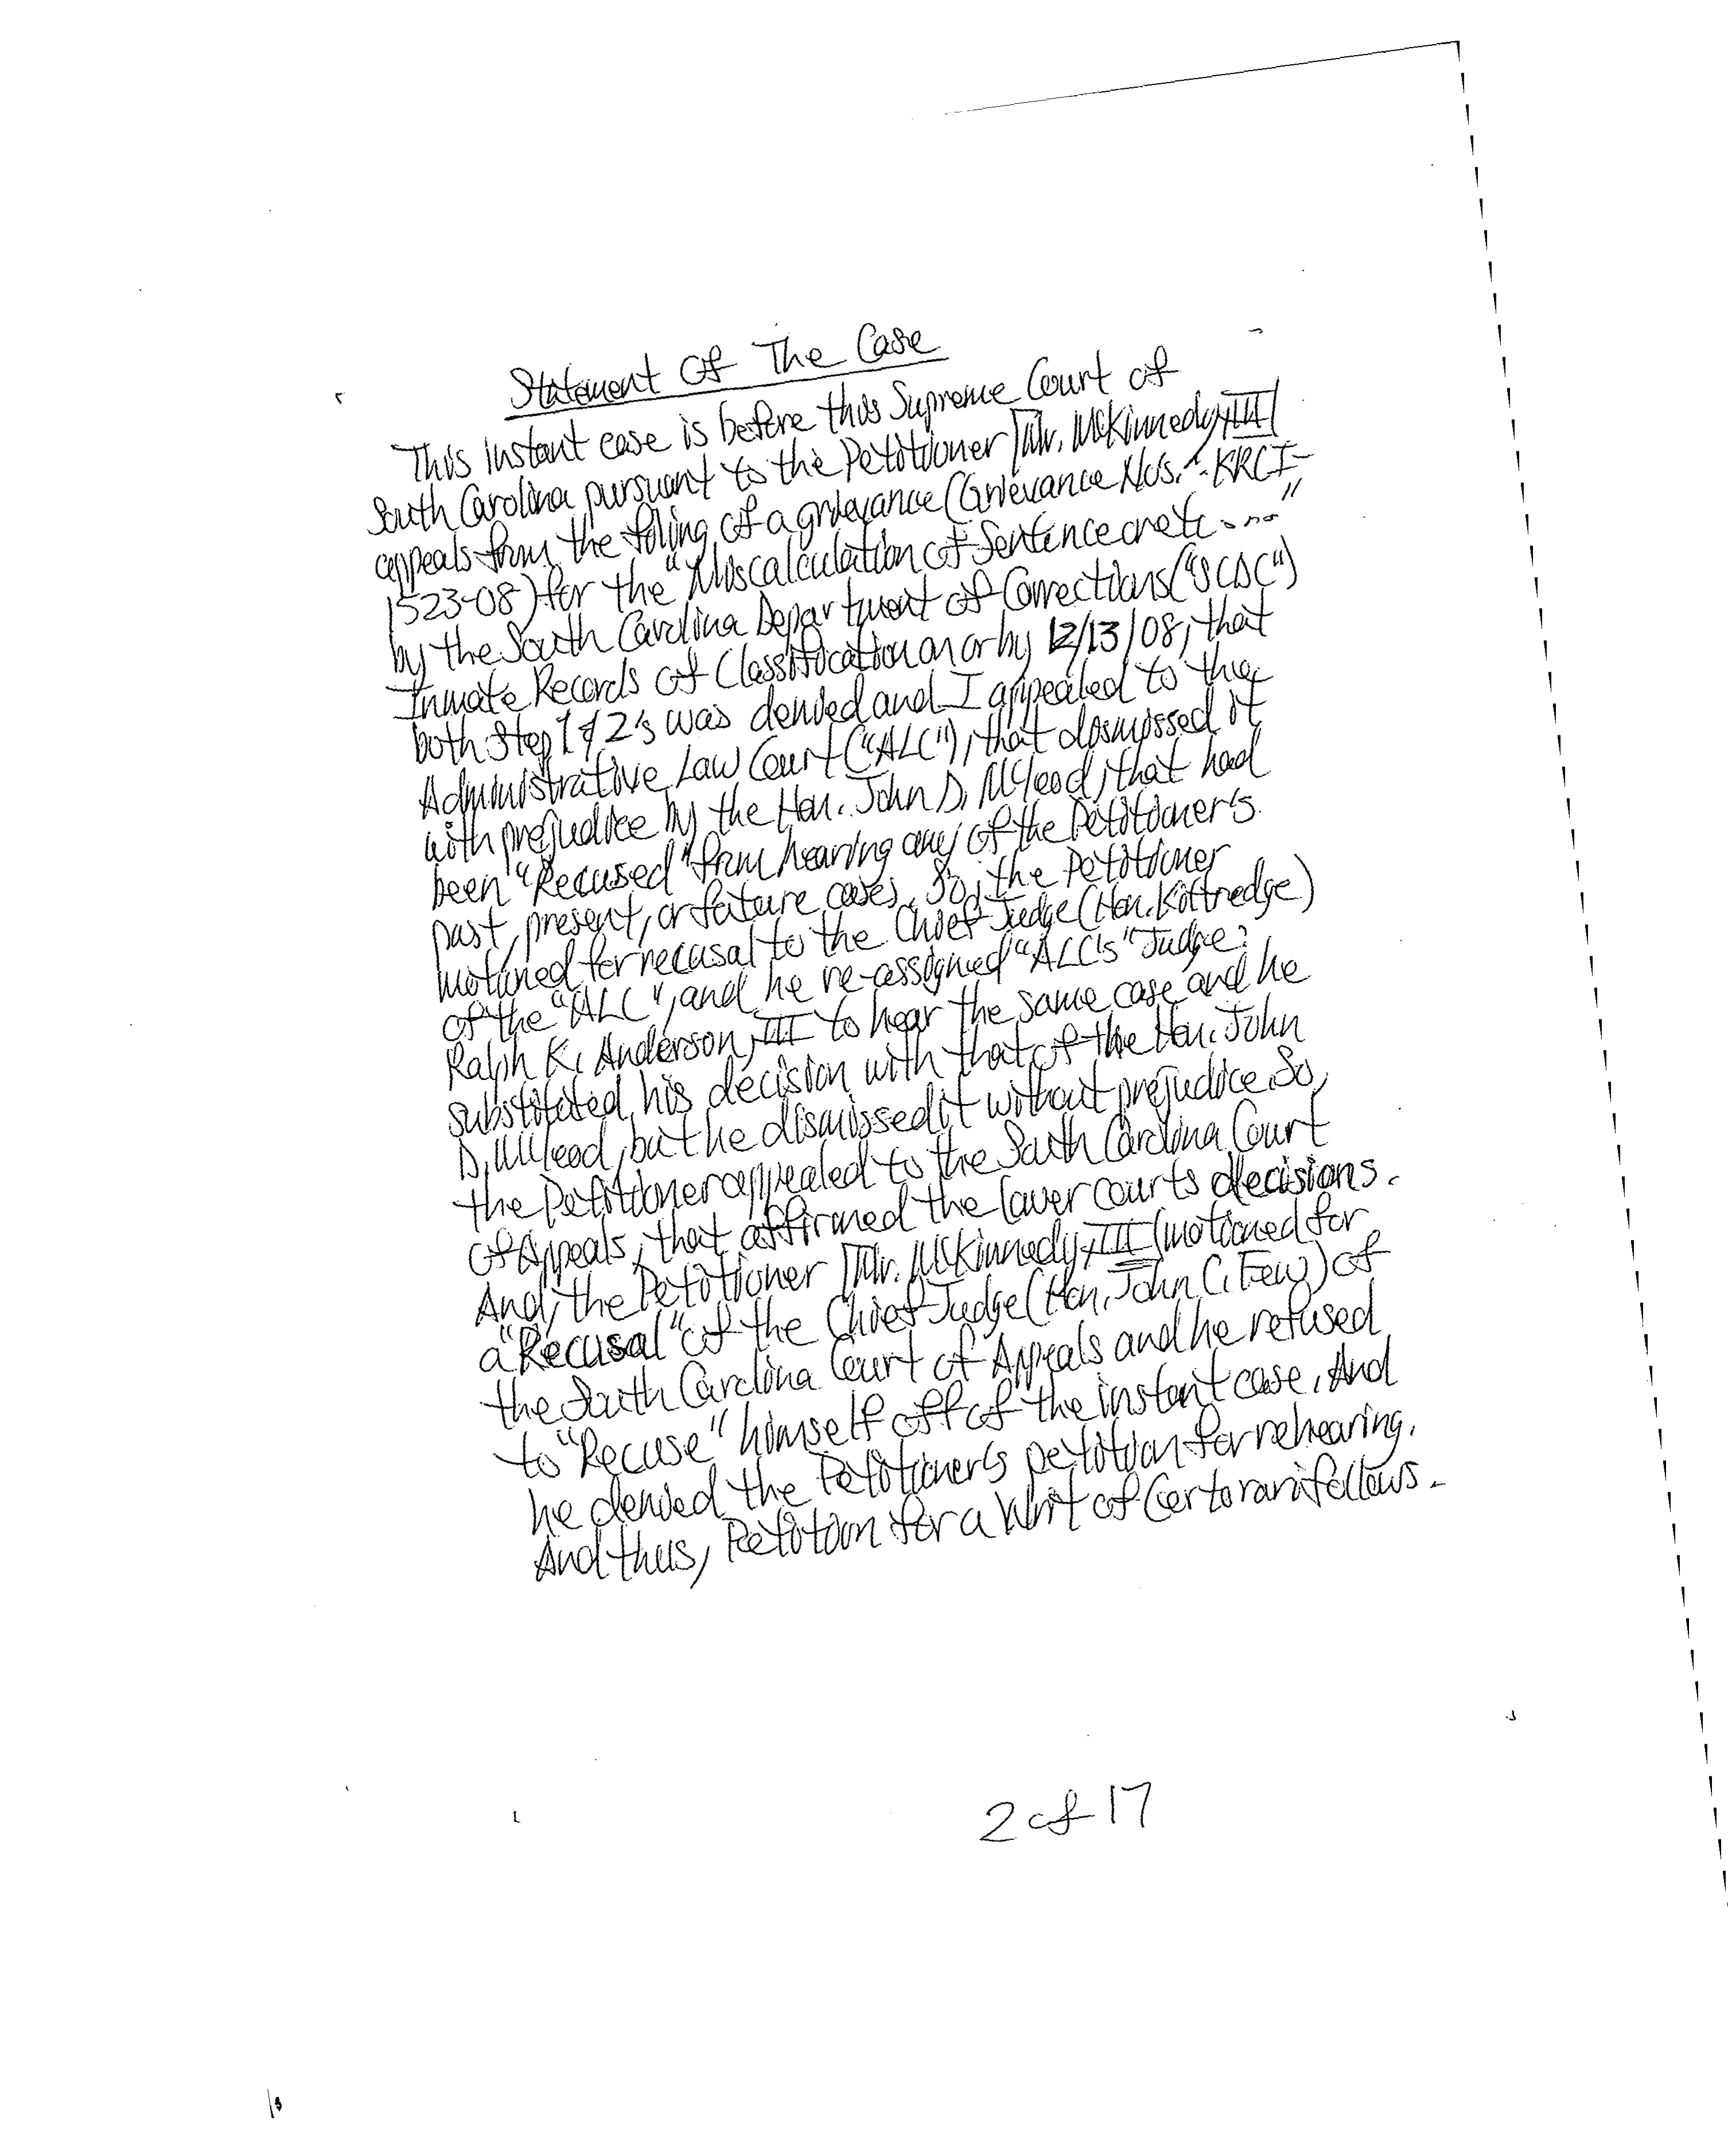 Statement Of The Case
This instant case is before this Supreme Court of
South Carolina pursuant to the Petitioner [Mr. McKinnedy, III]
appeals from the filing of a grievance (Grievance Nos.: KRCI-
1523-08) for the "Miscalculation of Sentence etc...."
by the South Carolina Department of Corrections ("SCDC")
Inmate Records of Classification on or by 12/13/08, that
both Step 1 & 2's was denied and I appealed to the
Administrative Law Court ("ALC"), that dismissed it
with prejudice by the Hon. John D. McLeod, that had
been "Recused" from hearing any of the Petitioner's
past, present, or future cases. So, the Petitioner
motioned for recusal to the Chief Judge (Hon. Kittredge)
of the "ALC", and he re-assigned "ALC's" Judge:
Ralph K. Anderson, III to hear the same case and he
substituted his decision with that of the Hon. John
D. McLeod, but he dismissed it without prejudice. So,
the Petitioner appealed to the South Carolina Court
of Appeals, that affirmed the lower courts decisions.
And, the Petitioner [Mr. McKinnedy, III] motioned for
a "Recusal" of the Chief Judge (Hon. John C. Few) of
the South Carolina Court of Appeals and he refused
to "Recuse" himself off of the instant case. And
he denied the Petitioner's petition for rehearing.
And thus, Petition for a Writ of Certorari follows.
2 of 17